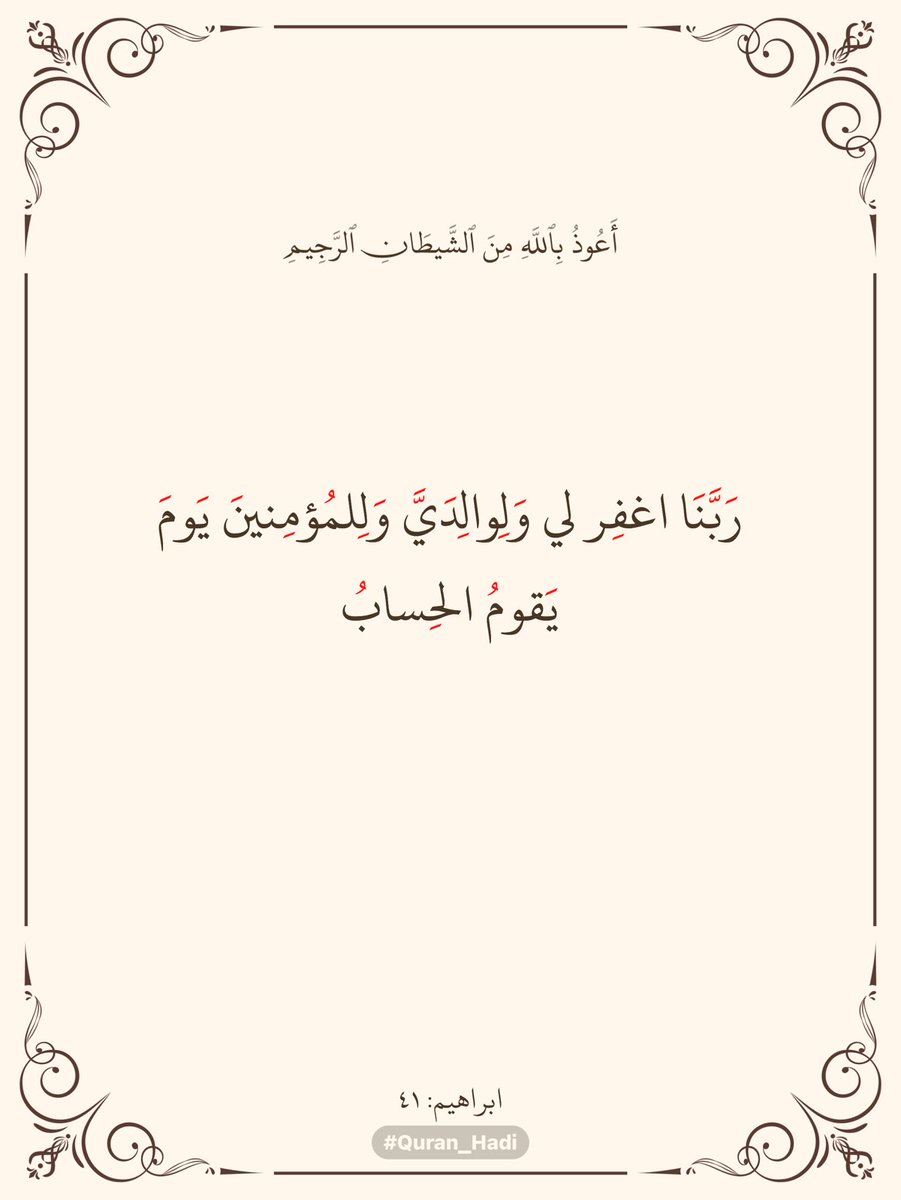 أَعُوذُ بِٱللَّهِ مِنَ ٱلشَّيطَانِ ٱلرَّجِيمِ
رَبَّنَا اغفِر لي وَلِوالِدَيَّ وَلِلمُؤمِنينَ يَومَ
يَقومُ الحِسابُ
ابراهيم: ٤١
#Quran_Hadi